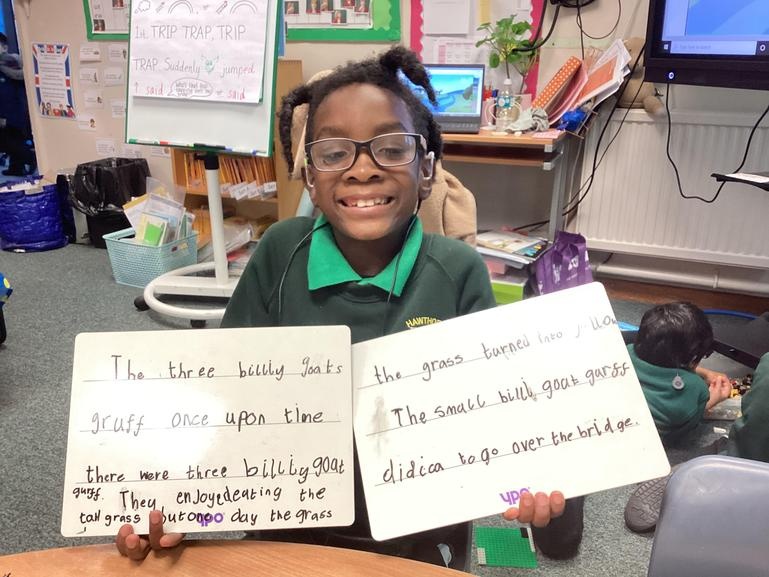 It TRIP TRAP, TRIP
TRAP. Suddenly jumped
said said
The three billiy goats
gruff once upon time
there were three billiy goat
gurff. They enjoyedeating the
tall grass but one day the grass
ypo
the grass turned into yllow
The small billi goat gurff
didica to go over the bridge.
ypo
HAWTHO